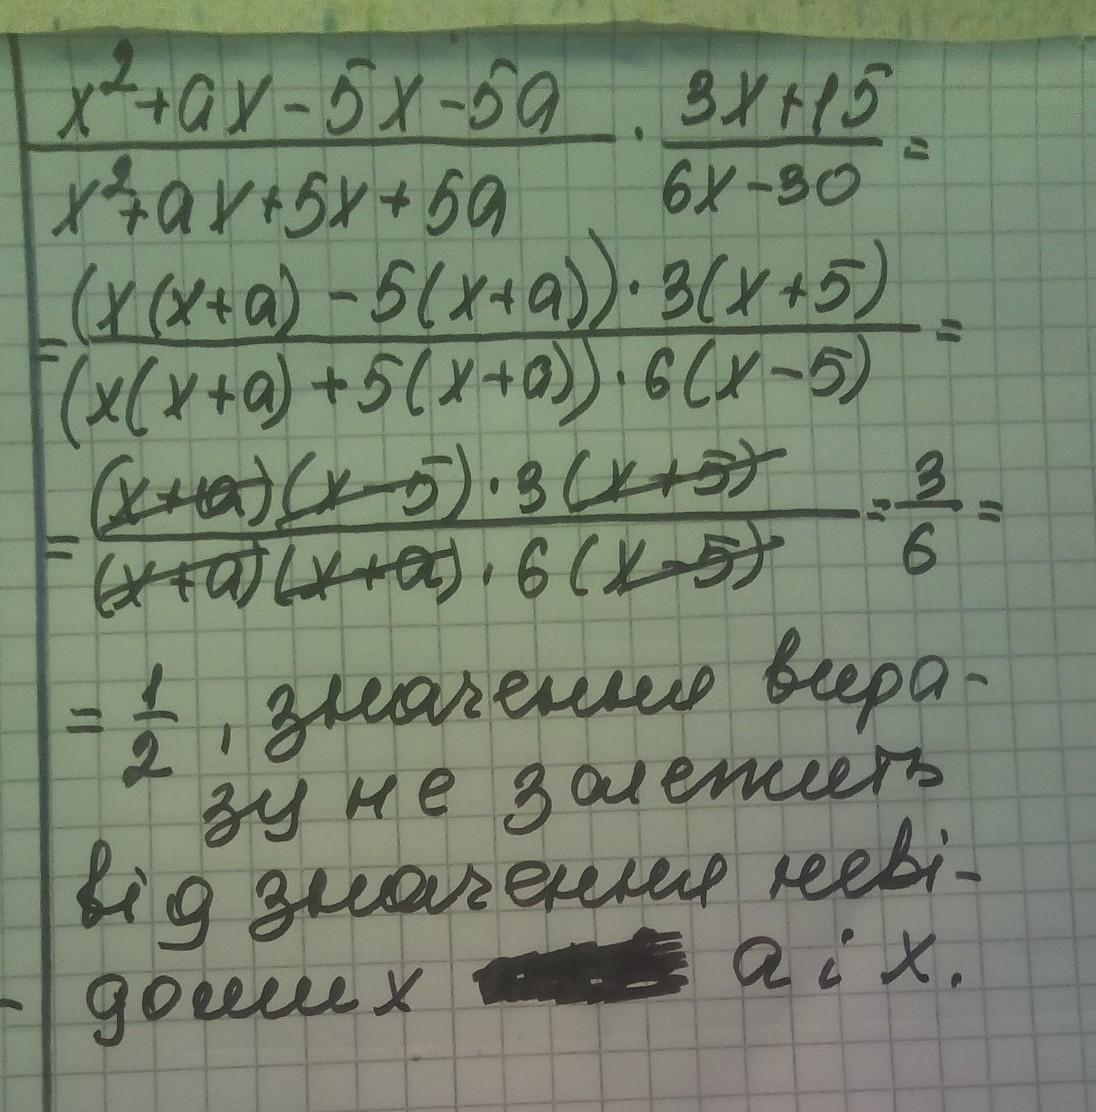 x²+ax-5x-5a / x²+ax+5x+5a · 3x+15 / 6x-30 =
= (x(x+a) - 5(x+a)) · 3(x+5) / (x(x+a) + 5(x+a)) · 6(x-5) =
= (x+a)(x-5) · 3(x+5) / (x+a)(x+a) · 6(x-5) = 3/6 =
= 1/2, значення вира-
зу не залежить
від значення неві-
домих а і х.